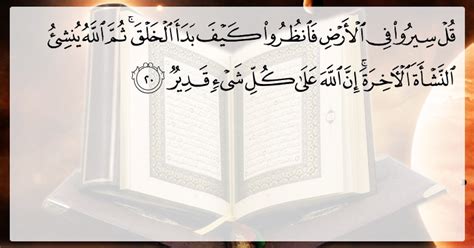 قُلۡ سِيرُواْ فِي ٱلۡأَرۡضِ فَٱنظُرُواْ كَيۡفَ بَدَأَ ٱلۡخَلۡقَۚ ثُمَّ ٱللَّهُ يُنشِئُ
ٱلنَّشۡأَةَ ٱلۡأٓخِرَةَۚ إِنَّ ٱللَّهَ عَلَىٰ كُلِّ شَيۡءٖ قَدِيرٞ ٢٠